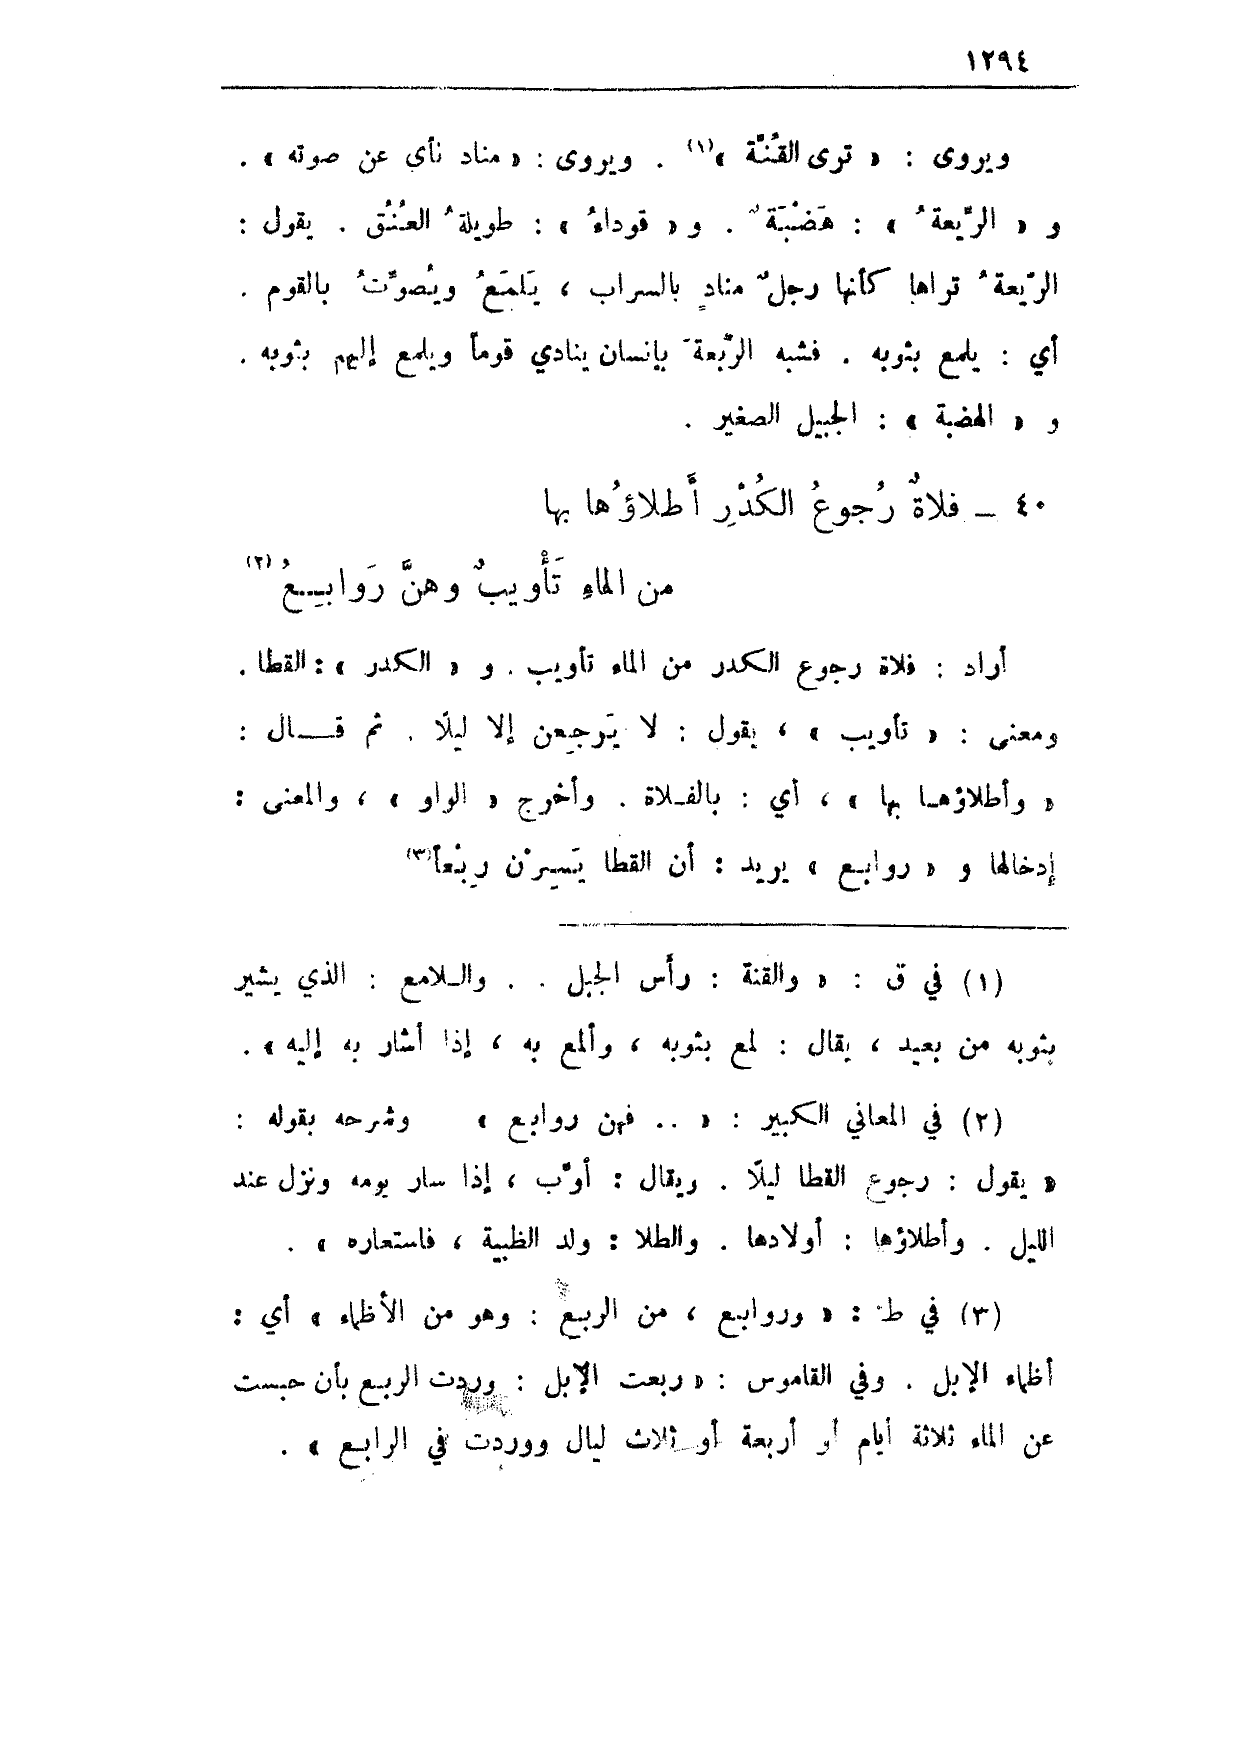 ١٢٩٤
ويروى : « ترى القُنَّة »(١) . ويروى : « مناد نأي عن صوته » .
و « الرَّيعةُ » : هَضْبَةٌ . و « قوداءُ » : طويلةُ العُنُق . يقول :
الرَّيعةُ تراها كأنها رجلٌ منادٍ بالسراب ، يَلمَعُ ويُصوِّتُ بالقوم .
أي : يلمع بثوبه . فشبه الرَّيعةَ بإنسان ينادي قوماً ويلمع إليهم بثوبه .
و « الهضبة » : الجبيل الصغير .
٤٠ – فلاةٌ رُجوعُ الكُدْرِ أَطلاؤُها بها
من الماءِ تَأْويبٌ وهنَّ رَوابِعُ (٢)
أراد : فلاة رجوع الكدر من الماء تأويب . و « الكدر » : القطا .
ومعنى : « تأويب » ، يقول : لا يَرجِعن إلا ليلًا . ثم قال :
« وأطلاؤها بها » ، أي : بالفلاة . وأخرج « الواو » ، والمعنى :
إدخالها و « روابع » يريد : أن القطا يَسِرْن رِبْعاً(٣)
(١) في ق : « والقنة : رأس الجبل . . واللامع : الذي يشير
بثوبه من بعيد ، يقال : لمع بثوبه ، وألمع به ، إذا أشار به إليه » .
(٢) في المعاني الكبير : « .. فهن روابع » وشرحه بقوله :
« يقول : رجوع القطا ليلًا . ويقال : أوَّب ، إذا سار يومه ونزل عند
الليل . وأطلاؤها : أولادها . والطلا : ولد الظبية ، فاستعاره » .
(٣) في ط : « وروابع ، من الربع : وهو من الأظماء » أي :
أظماء الإبل . وفي القاموس : « ربعت الإبل : وردت الربع بأن حبست
عن الماء ثلاثة أيام أو أربعة أو ثلاث ليال ووردت في الرابع » .